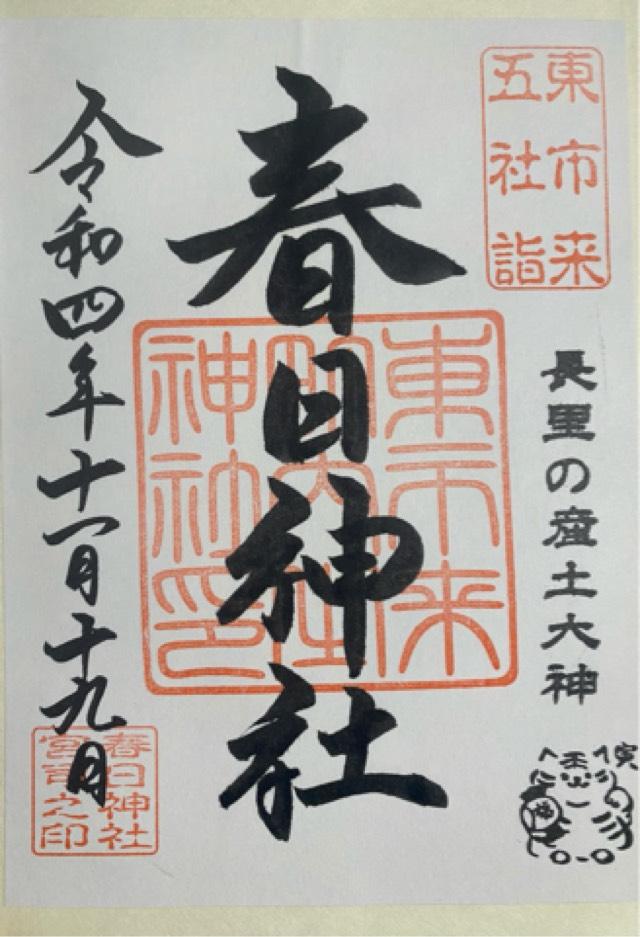 東市来
五社詣
長里の産土大神
春日神社
東市来
神社印
令和四年十一月十九日
春日神社
宮司之印